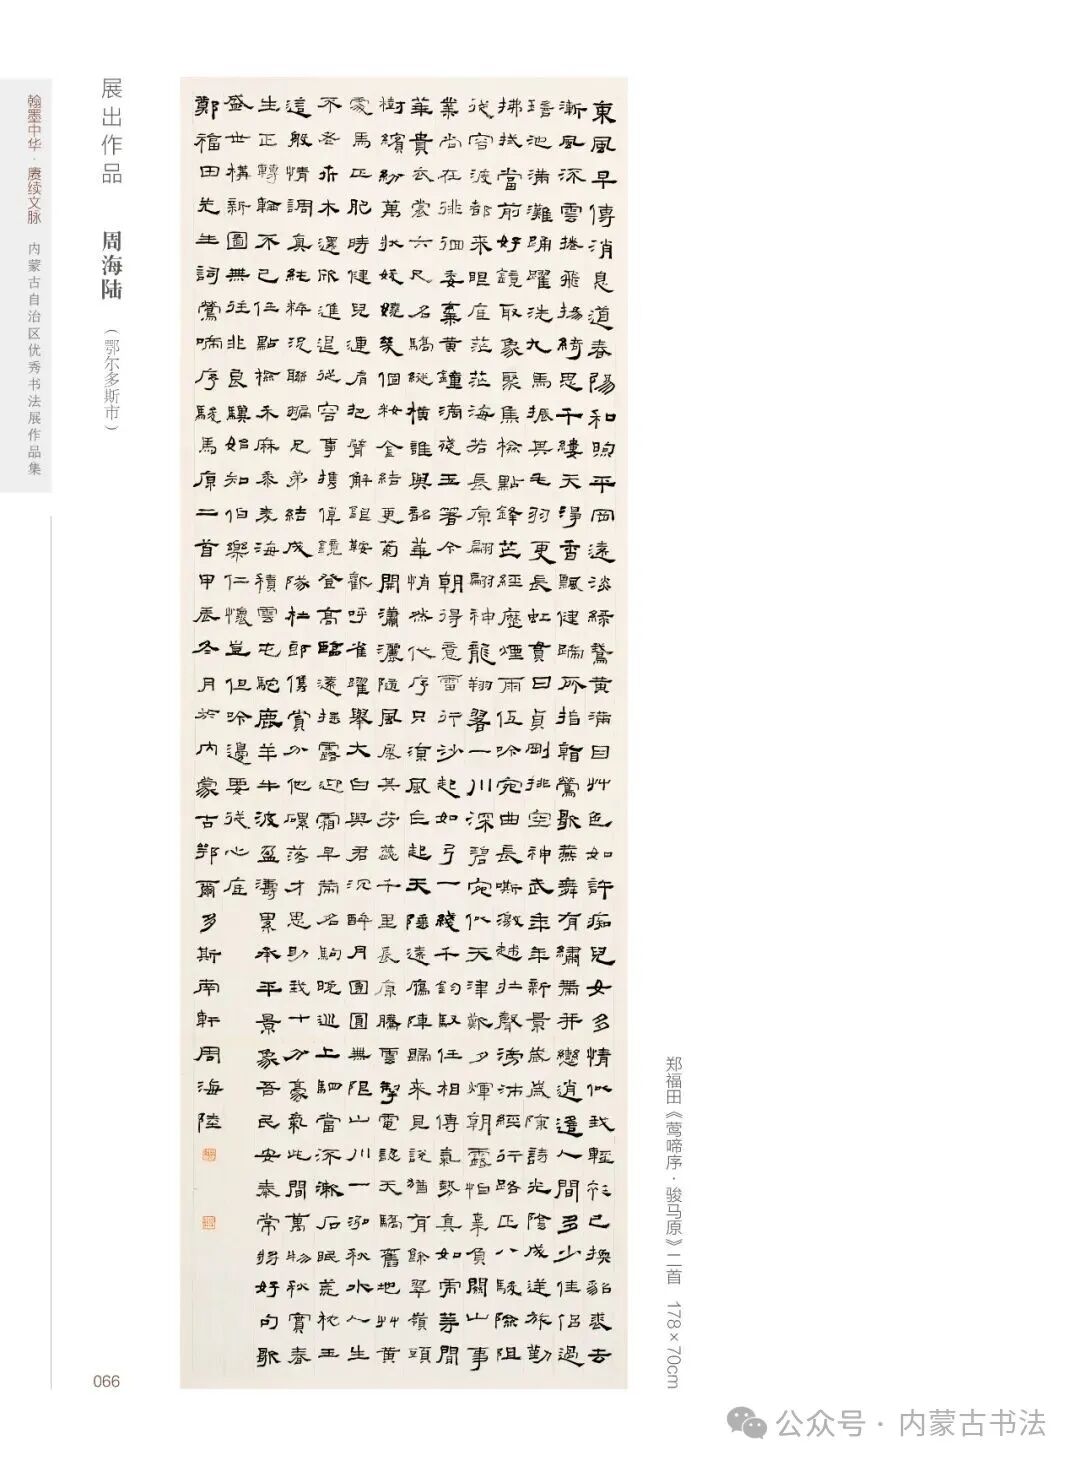 翰墨中华·赓续文脉 内蒙古自治区优秀书法展作品集
展出作品 周海陆 (鄂尔多斯市)
東風早傳消息道春陽和煦平岡遠淡綠鵞黃滿目艸色如許痴兒女多情似我輕衫已換貂裘去
漸風流雲捲飛揚綺思千縷天淨香飄健蹄所指鶯歌燕舞有繡帶并轡逍遙人間多少佳侶過
瑤池滿灘踊躍洗九馬振其毛羽更長虹貫日貞剛排空神武年年新景歲歲陳詩光陰成逆旅勤
拂拭當前好鏡取象聚焦檢點鋒芒經歷煙雨低吟宛曲長嘶激越壯聲滂沛經行路正八駿險阻
從容渡都來眼底茫茫海若長原翩翩神龍翔翥一川深碧宛似天津夕煇朝露怕辜負關山事
業尚在徘徊委棄黃鐘滴殘玉箸今朝得意雷行沙起如弓一綫千鈞馭任相傳氣勢真如等閒
華貴衣裳六尺名驕縱橫誰與韶華悄然代序只須風白起天陲遠鴈陣歸來見說猶有餘翠嶺頭
樹繽紛萬狀妖嬈幾個妝金結更菊開瀟灑隨風展其芳蕊千里長原騰雲掣電認天驕舊地艸黃
處馬正肥時健兒連肩把臂解鞍歡呼雀躍舉大白與君沉醉月團圓無限山川一泓秋水人生
不老木還進退從容事攜鏡登高臨遠揖露迎霜早帶名駒晚巡上駟當流漱石眠荒枕玉
這般情調真純粹況聯翩兄弟結成隊杜郎雋賞他磥落才思助我十分豪氣此間萬物秋實春
生正轉輪不已任點檢禾麻黍麦海積雲屯駝鹿羊牛波盈濤累承平景象吾民安泰常將好句歌
盛世構新圖無往非良驥始知伯樂仁懷豈但吟邊要從心庭
鄭福田先生詞鶯啼序駿馬原二首甲辰冬月於內蒙古鄂爾多斯南軒周海陸
郑福田《莺啼序·骏马原》二首 178×70cm
066
公众号·内蒙古书法